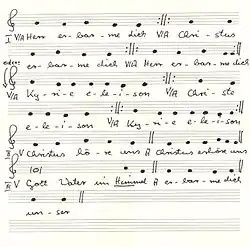 I V/A Herr er-bar-me dich V/A Chri-stus
oder:
er-bar-me dich V/A Herr er-bar-me dich
V/A Ky-ri-e e-le-i-son V/A Chri-ste
e-le-i-son V/A Ky-ri-e e-le-i-son
V Christus hö-re uns A Christus erhöre uns
V Gott Vater im Himmel A er-bar-me dich
uns-ser